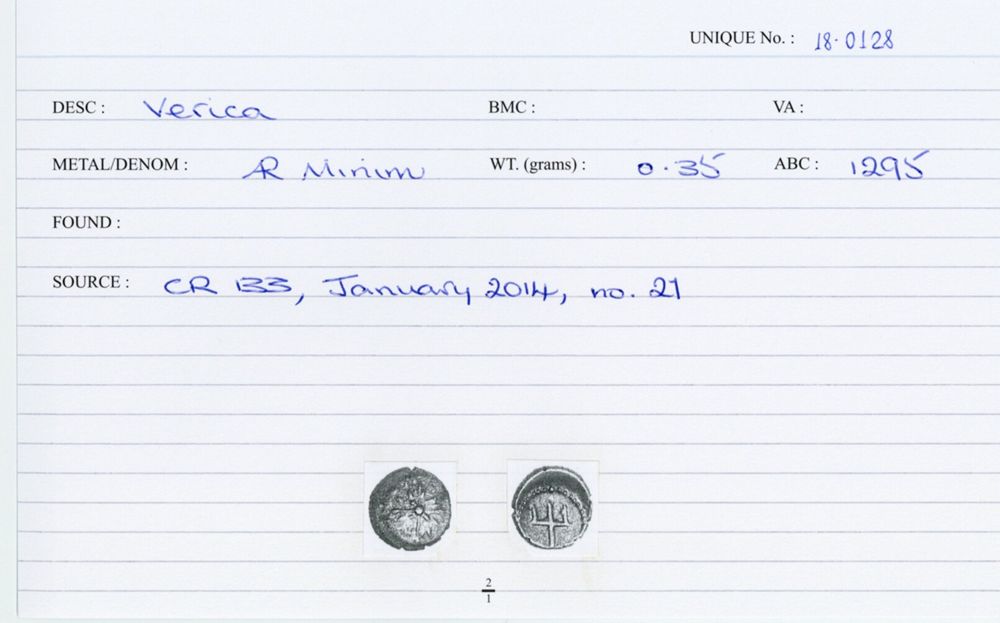 UNIQUE No. : 18·0128
DESC : Verica BMC : VA :
METAL/DENOM : AR Minim WT. (grams) : 0.35 ABC : 1295
FOUND :
SOURCE : CR 133, January 2014, no. 21
2
1